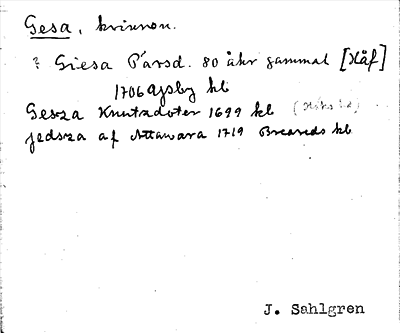 Gesa, kvinnon.
? Giesa Pärsd. 80 åhr gammal [Häf]
1706 kb
Gesza Knutzdoter 1699 kb
jedsza af Attawara 1719 Breareds kb
J. Sahlgren